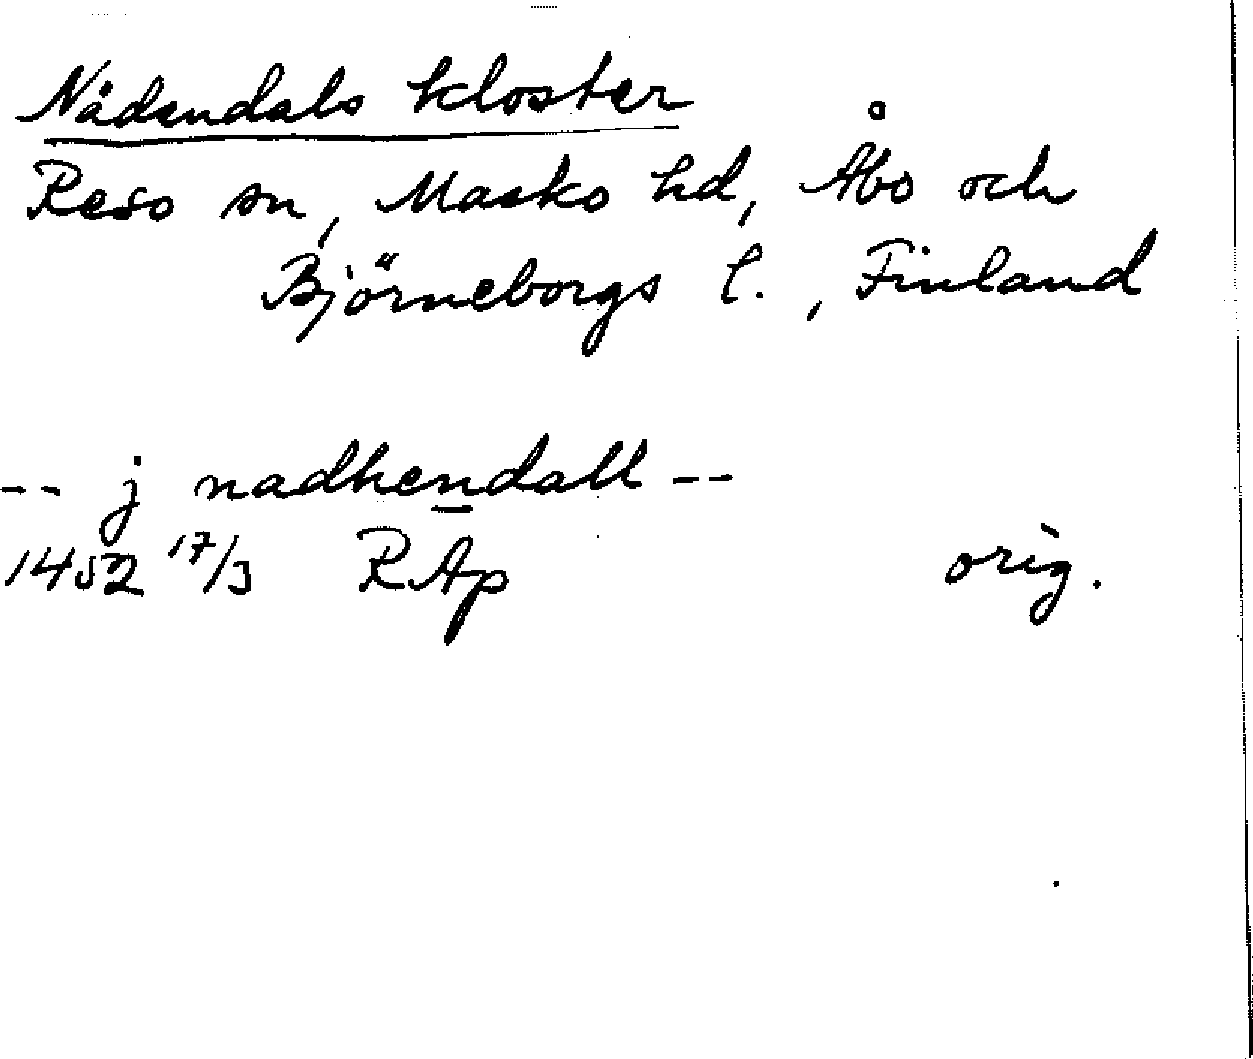 Nådendals kloster
Reso sn, Masko hd, Åbo och
Björneborgs l., Finland
-- j nadhendall --
1452 17/3 RAp orig.